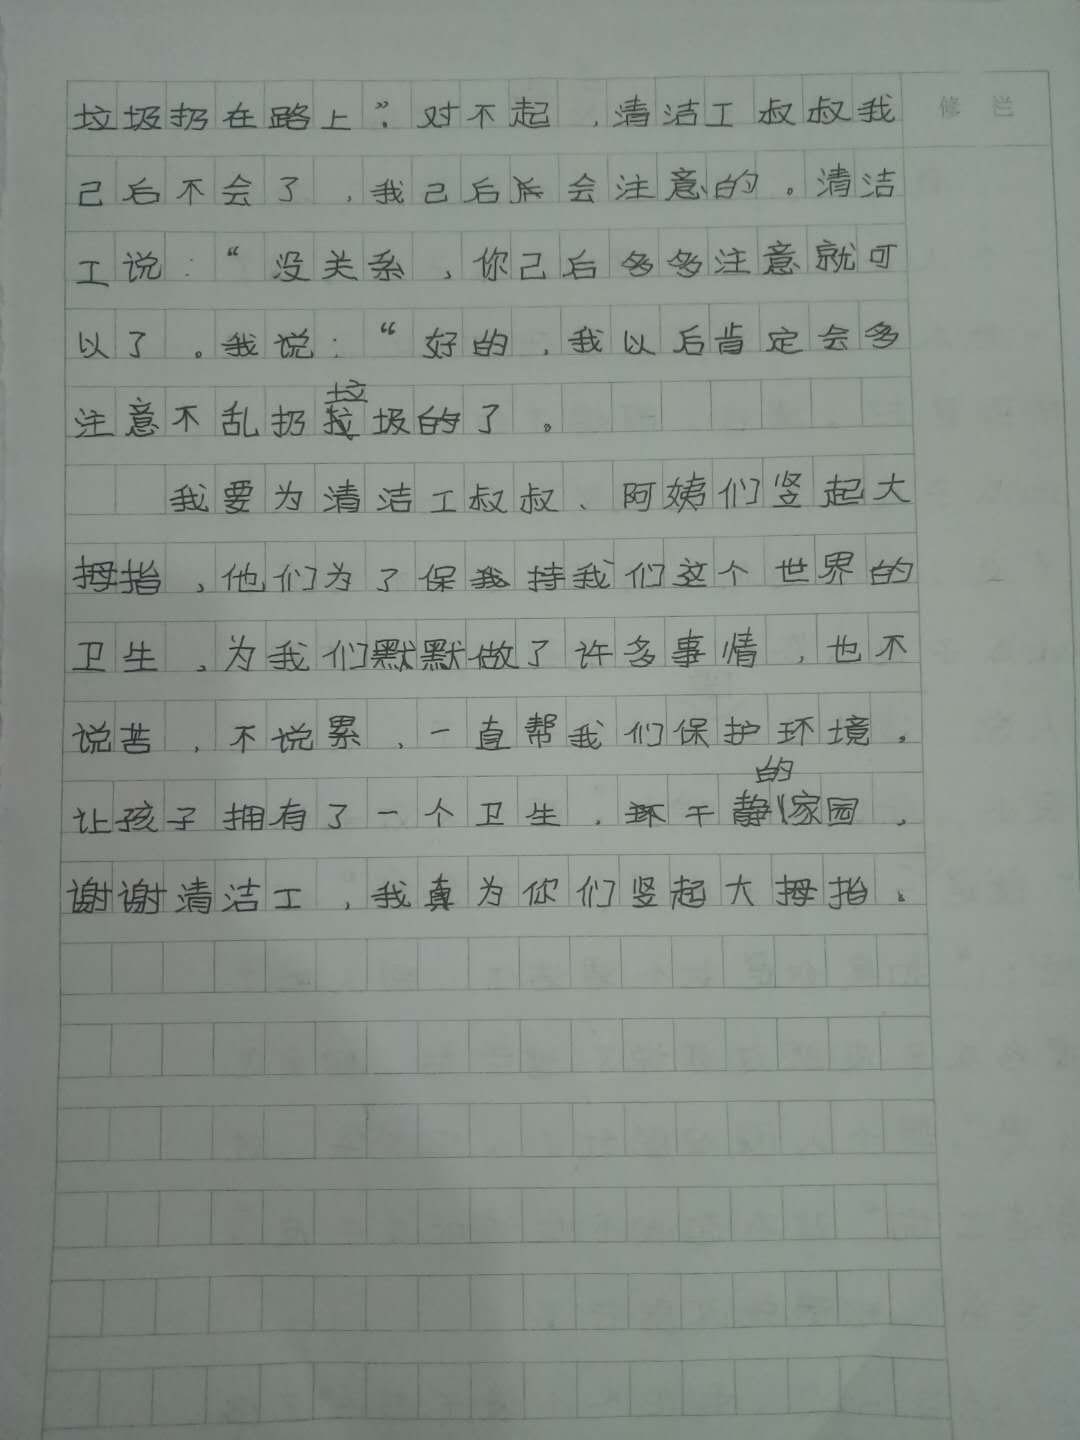 垃圾扔在路上”。对不起，清洁工叔叔我
修 栏
己后不会了，我己后会注意的。清洁
工说：“没关系，你己后多多注意就可
以了。我说：“好的，我以后肯定会多
注意不乱扔垃圾的了。
我要为清洁工叔叔、阿姨们竖起大
拇指，他们为了保持我们这个世界的
卫生，为我们默默做了许多事情，也不
说苦，不说累，一直帮我们保护环境，
让孩子拥有了一个卫生，环干静的家园，
谢谢清洁工，我真为你们竖起大拇指。